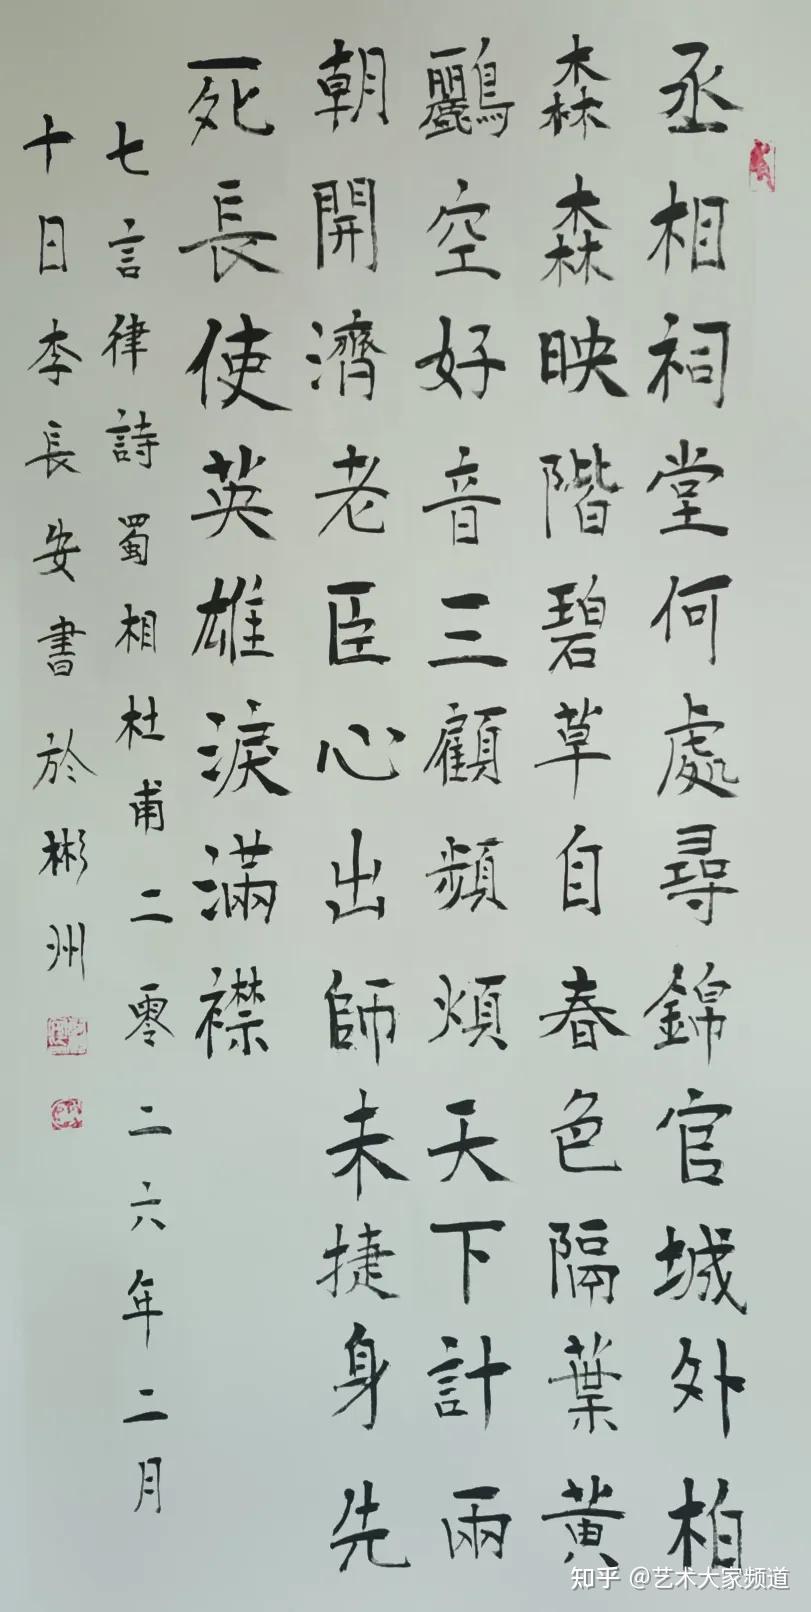 丞相祠堂何處尋錦官城外柏
森森映階碧草自春色隔葉黃
鸝空好音三顧頻煩天下計兩
朝開濟老臣心出師未捷身先
死長使英雄淚滿襟
七言律詩蜀相杜甫二零二六年二月
十日李長安書於彬州
知乎 @艺术大家频道